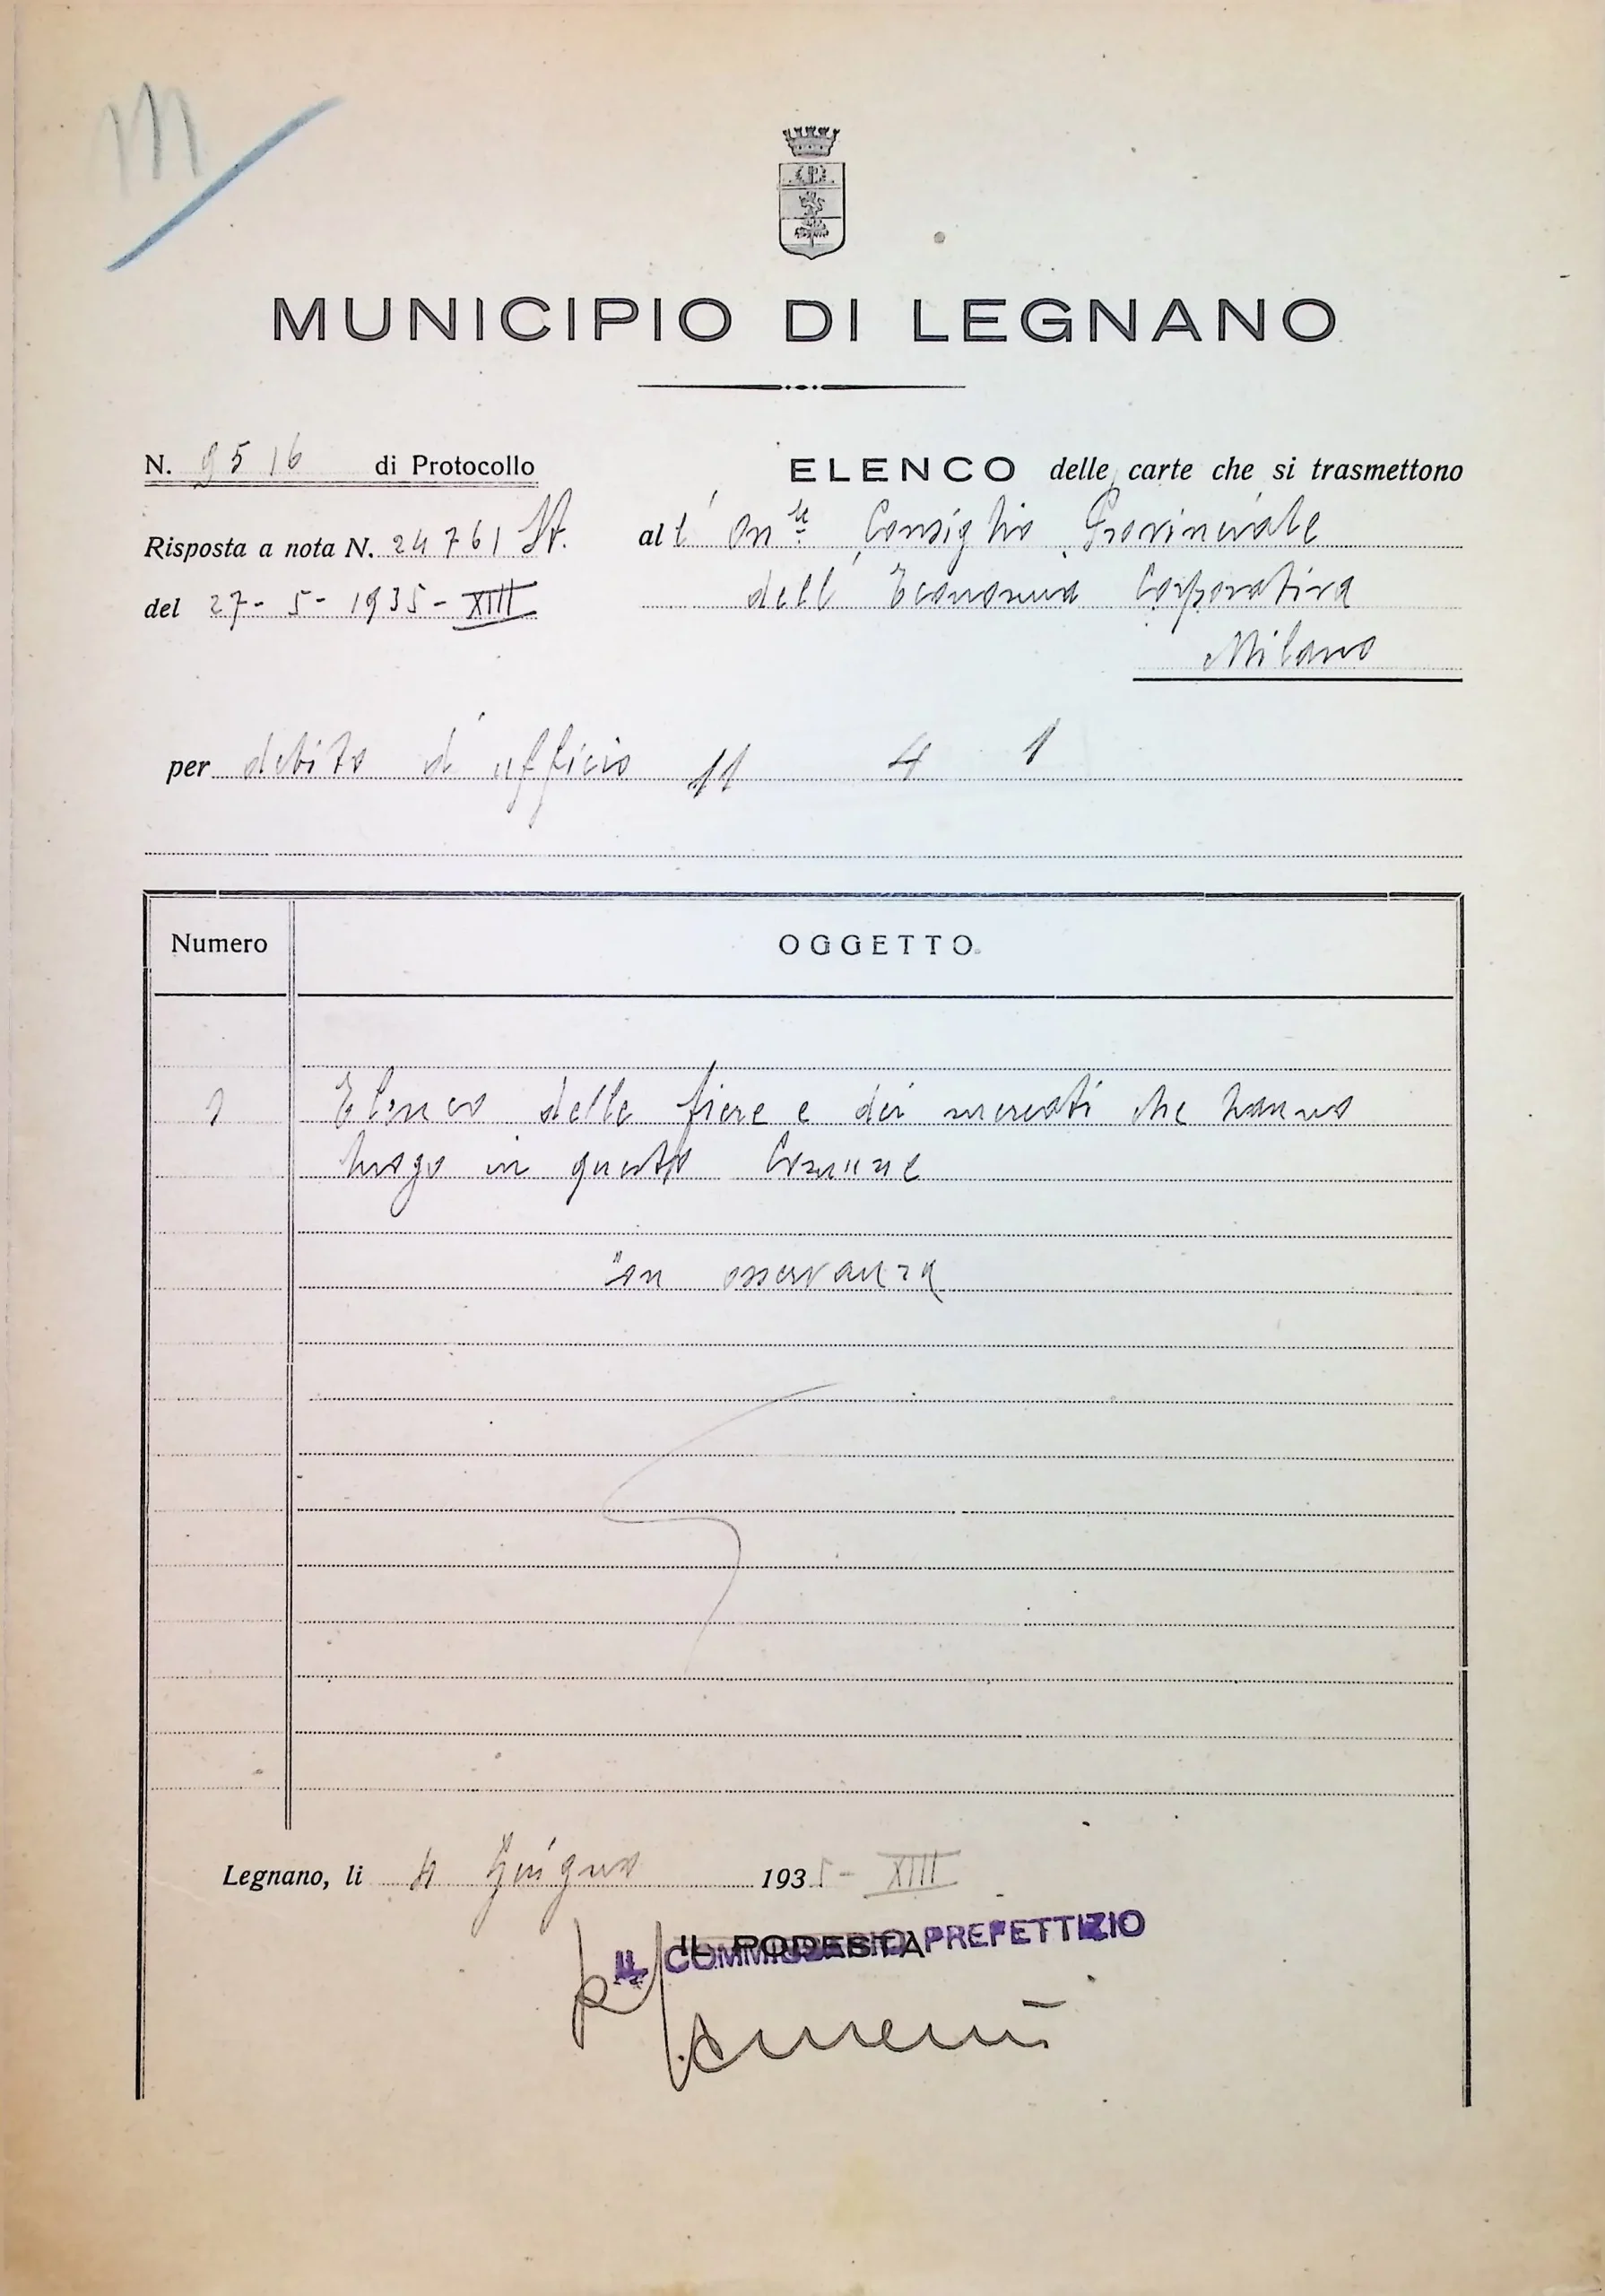 M
MUNICIPIO DI LEGNANO
N. 9516 di Protocollo
Risposta a nota N. 24761 St.
del 27-5-1935-XIII
ELENCO delle carte che si trasmettono
all' On.le Consiglio Provinciale
dell' Economia Corporativa
Milano
per debito d' ufficio 11 4 1
Numero OGGETTO
1 Elenco delle fiere e dei mercati che hanno
luogo in questo Comune
Con osservanza
Legnano, li 4 Giugno 1935-XIII
IL PODESTÀ
IL COMMISSARIO PREFETTIZIO